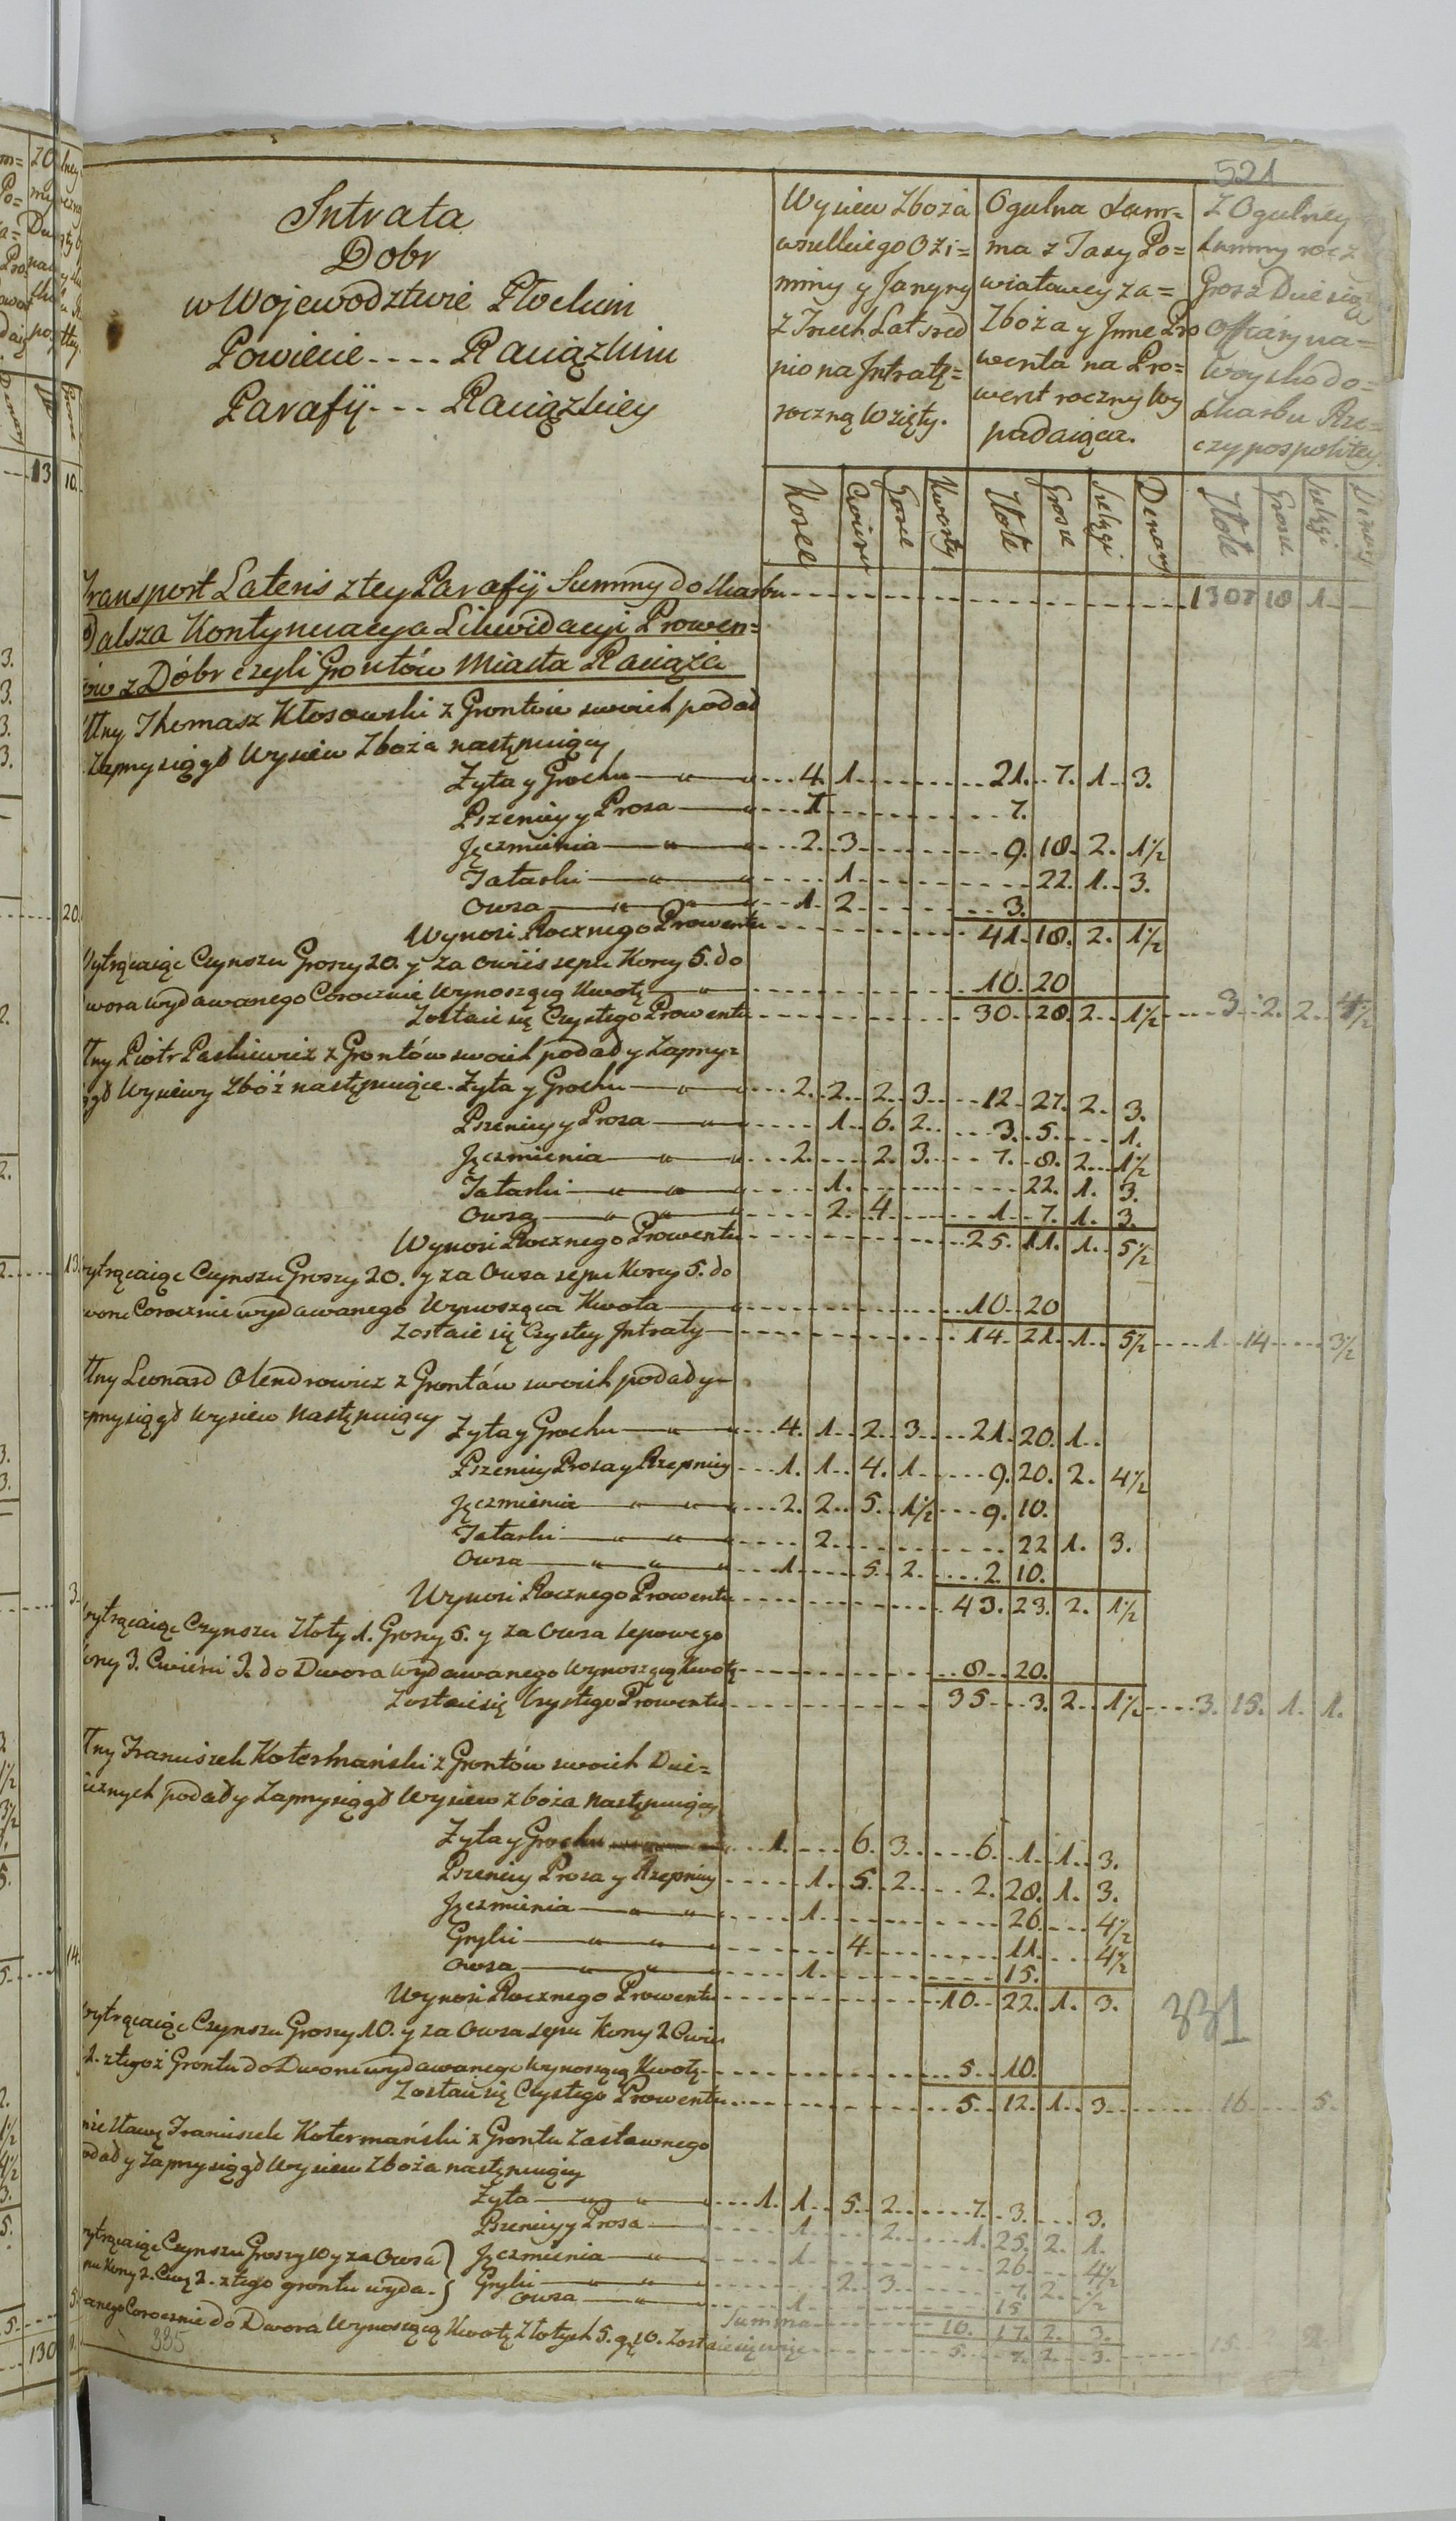 521
Intrata
Dobr
w Wojewodztwie Płockim
Powiecie - - - - Raciązkim
Parafij - - - Raciązkiey
Wysiew Zboża wszelkiego Ozi= miny y Jarzyny z Trzech Lat sred nio na Intratę= roczną Wzięty.
Ogulna Sum= ma z Taxy Po= wiatowey za= Zboża y Inne Pro wenta na Pro= went roczny Wy padaiąca.
Z Ogulney Summy rocz Grosz Dziesią Offiary na= Woysko do= Skarbu Rze= czypospolitey
Korce Cwierci Garce Kwarty Złote Grosze Szelągi Denary Złote Grosze Szelągi Denary
Transport Lateris z tey Parafij Summy do Skarbu 1307 18 1
Dalsza Kontynuacya Likwidacyi Prowen=
tow z Dóbr czyli Grontów Miasta Raciąża
Ttny Thomasz Kłosowski z Grontów swoich podał
Zaprzysiągł Wysiew Zboża następuiący
Zyta y Grochu 4. 1 21. 7. 1. 3.
Pszenicy y Prosa 1 7.
Jęczmienia 2. 3 9. 18. 2. 1½
Tatarki 1 22. 1. 3.
Owsa 1. 2 3.
Wynosi Rocznego Prowentu 41. 18. 2. 1½
Wytrącaiąc Czynszu Groszy 20. y za Owies sepu Korcy 5. do
Dwora wydawanego Corocznie Wynoszącą Kwotę 10. 20
Zostaie się Czystego Prowentu 30. 28. 2. 1½ 3. 2. 2. 4½
Ttny Piotr Paskiewicz z Grontów swoich podał y Zaprzy=
siągł Wysiewy Zbóż następuiące. Zyta y Grochu 2. 2. 2. 3. 12. 27. 2. 3.
Pszenicy y Prosa 1. 6. 2. 3. 5. 1.
Jęczmienia 2. 2. 3. 7. 8. 2. 1½
Tatarki 1. 22. 1. 3.
Owsa 2. 4 1. 7. 1. 3.
Wynosi Rocznego Prowentu 25. 11. 1. 5½
Wytrącaiąc Czynszu Groszy 20. y za Owsa sepu Korcy 5. do
Dworu Corocznie wydawanego Wynosząca Kwota 10. 20
Zostaie się Czystey Intraty 14. 21. 1. 5½ 1. 14 3½
Ttny Leonard Olendrowicz z Grontów swoich podał y
Zaprzysiągł Wysiew Następuiący Zyta y Grochu 4. 1. 2. 3. 21. 20. 1.
Pszenicy Prosa y Rzepnicy 1. 1. 4. 1. 9. 20. 2. 4½
Jęczmienia 2. 2. 5. 1½ 9. 10.
Tatarki 2. 22 1. 3.
Owsa 1. 5. 2. 2. 10.
Wynosi Rocznego Prowentu 43. 23. 2. 1½
Wytrącaiąc Czynszu Złoty 1. Groszy 5. y za Owsa Sepowego
Korcy 3. Cwierci 3. do Dwora Wydawanego Wynoszącą Kwotę 8. 20.
Zostaie się Czystego Prowentu 35. 3. 2. 1½ 3. 15. 1. 1.
Ttny Franciszek Kotermański z Grontów swoich Dzie=
dzicznych podał y Zaprzysiągł Wysiew Zboża Następuiący
Zyta y Grochu 1. 6. 3. 6. 1. 1. 3.
Pszenicy Prosa y Rzepnicy 1. 5. 2. 2. 28. 1. 3.
Jęczmienia 1. 26. 4½
Gryki 4. 11. 4½
Owsa 1. 15.
Wynosi Rocznego Prowentu 10. 22. 1. 3.
331
Wytrącaiąc Czynszu Groszy 10. y za Owsa sepu Korcy 2 Cwier
2. z tegoż Grontu do Dworu wydawanego Wynoszącą Kwotę 5. 10.
Zostaie się Czystego Prowentu 5. 12. 1. 3. 16. 5.
Franciszek Kotermański z Grontu Zastawnego
podał y Zaprzysiągł Wysiew Zboża następuiący
Zyta 1. 1. 5. 2. 7. 3. 3.
Pszenicy y Prosa 1. 2. 1. 25. 2. 1.
Jęczmienia 1. 26. 4½
Gryki 2. 3. 7. 2. ½
Owsa 1. 15
Wytrącaiąc Czynszu Groszy 10 y za Owsa
sepu Korcy 2. Cwię 2. z tego grontu wyda=
wanego Corocznie do Dwora Wynoszącą Kwotę Złotych 5. gr 10. Zostaie się więc 5. 7. 2. 3. 15.
Summa 10. 17. 2. 3.
335